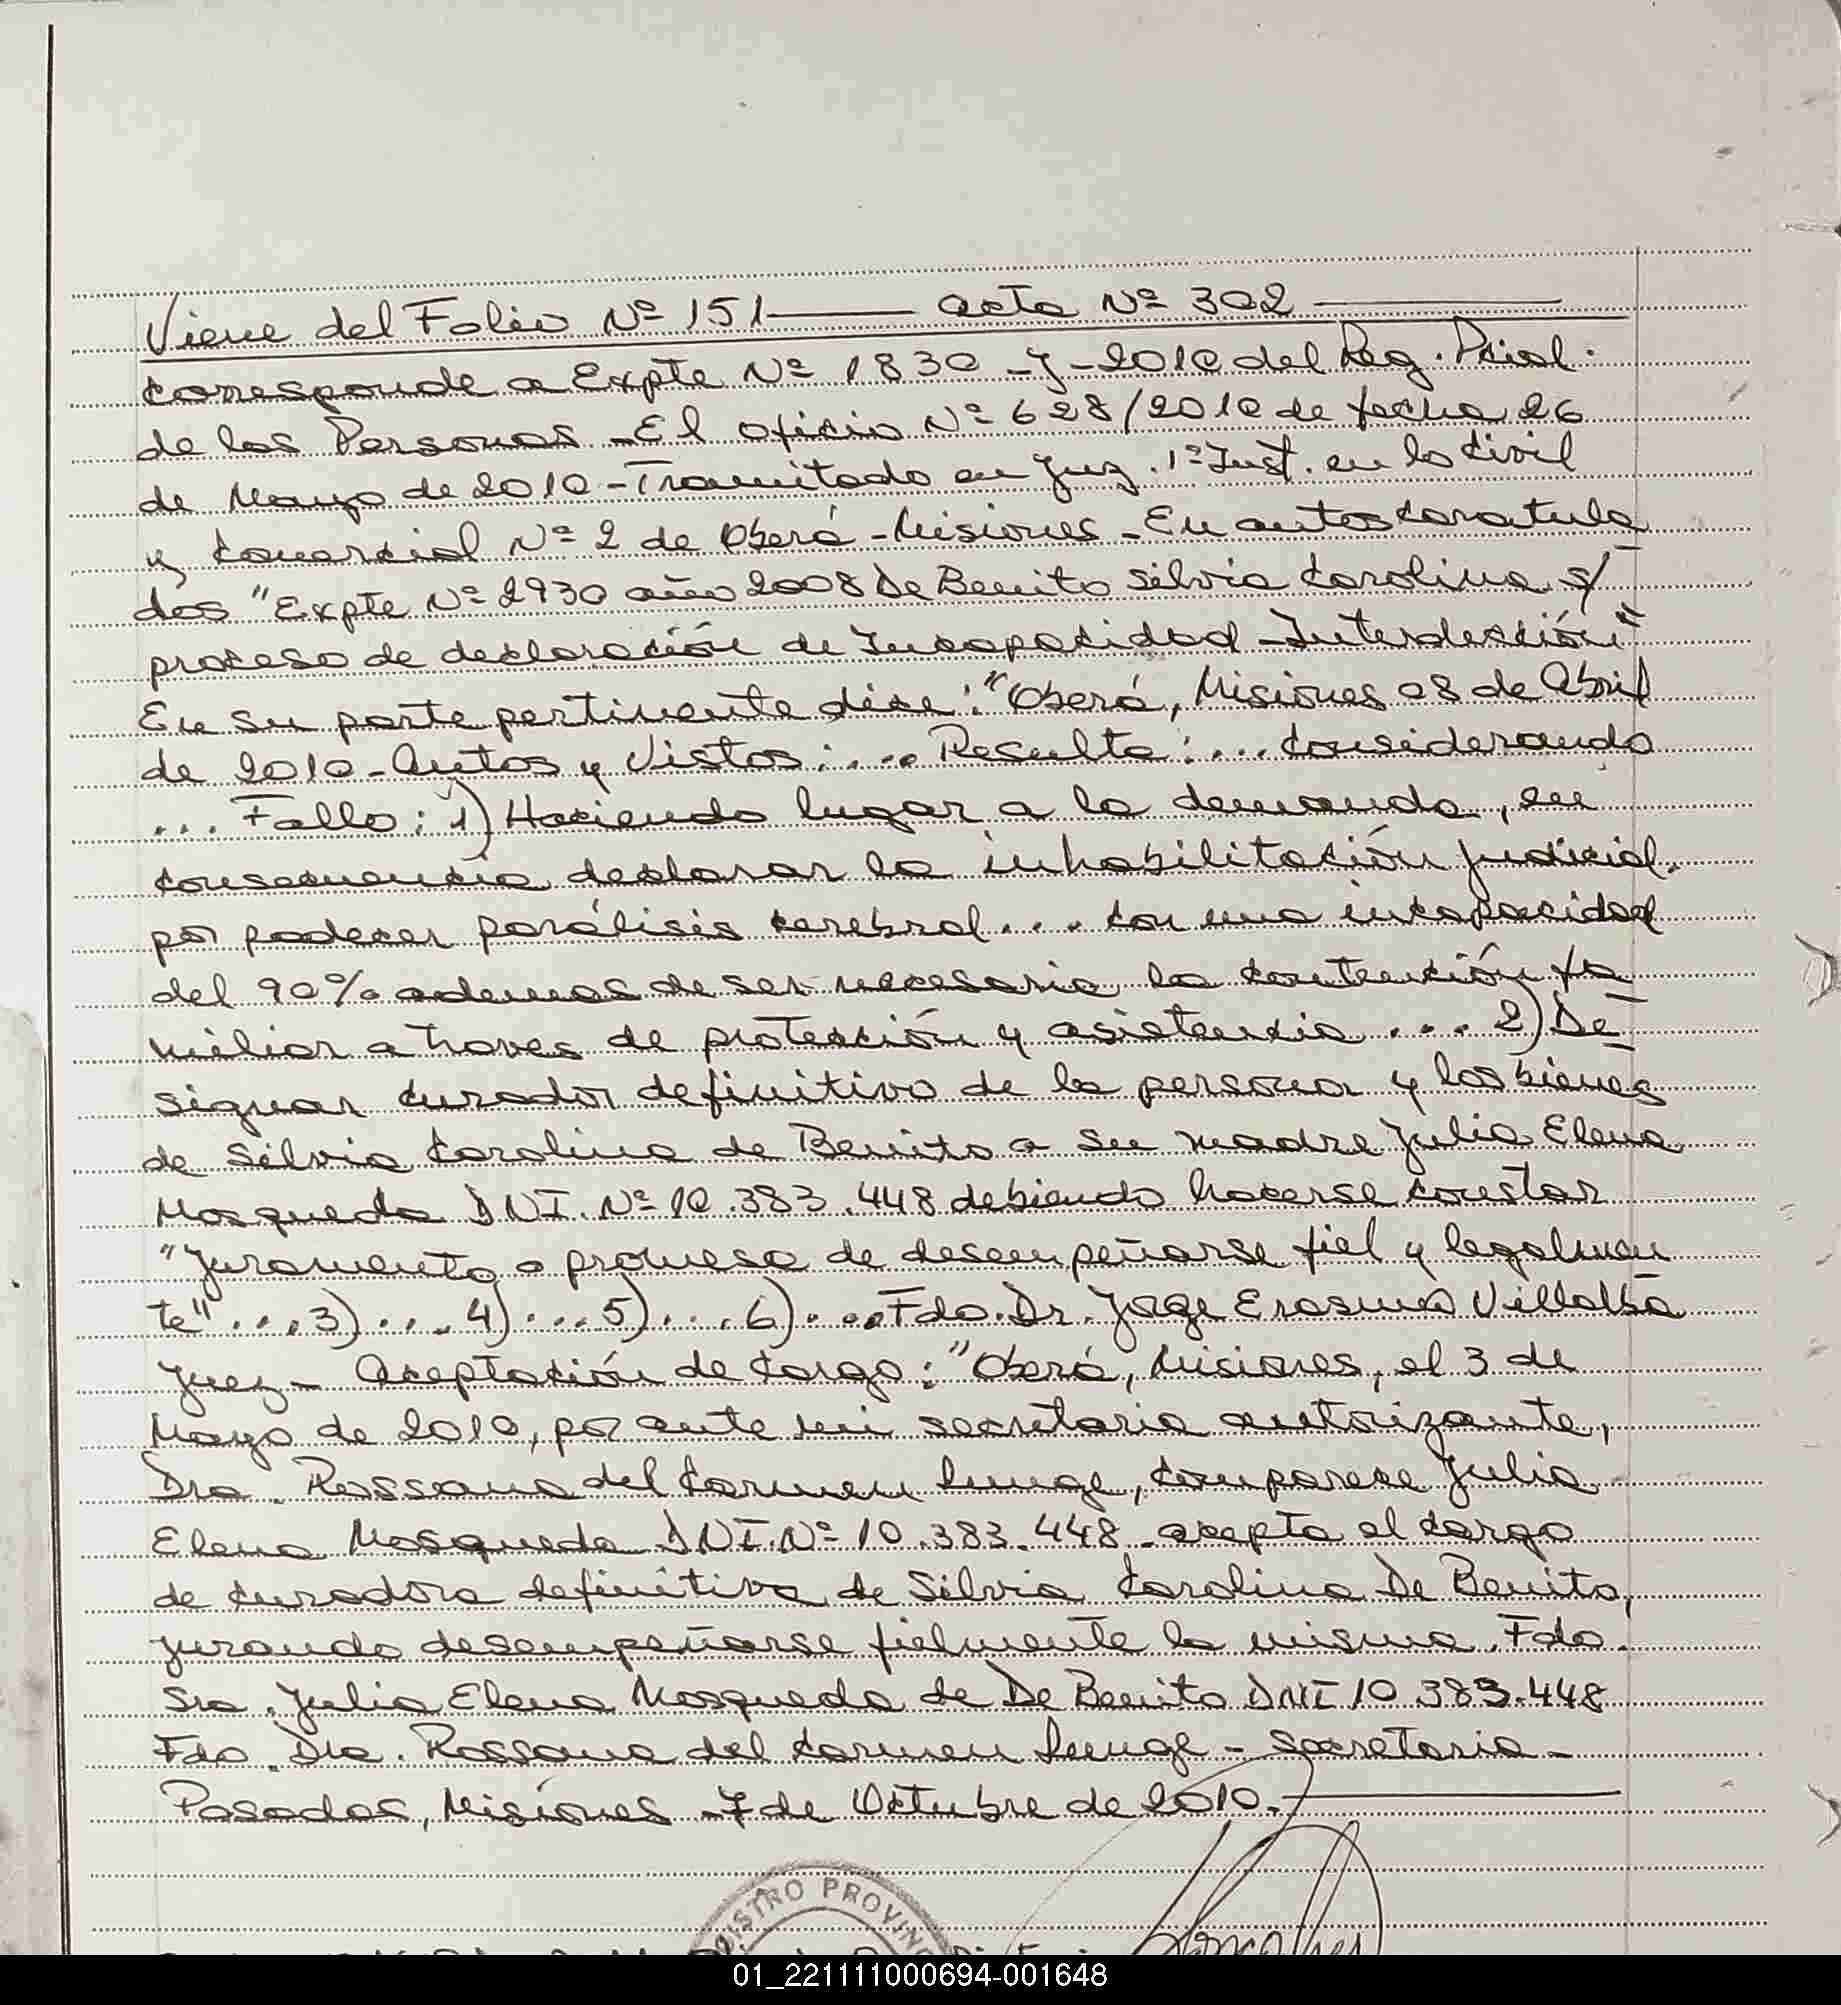 Viene del Folio Nº 151 — acta Nº 302 —
corresponde a Expte Nº 1830 -J- 2010 del Reg. Pcial.
de las Personas - El oficio Nº 628/2010 de fecha 26
de Mayo de 2010 - Tramitado en Juz. 1º Inst. en lo Civil
y Comercial Nº 2 de Oberá - Misiones - En autos caratula
dos "Expte Nº 2930 año 2008 De Benito Silvia Carolina s/
proceso de declaración de Incapacidad - Interdicción"
En su parte pertinente dice: "Oberá, Misiones 08 de Abril
de 2010 - Autos y Vistos: ... Resulta: ... Considerando
... Fallo: 1) Haciendo lugar a la demanda, en
consecuencia declarar la inhabilitación judicial.
por padecer parálisis cerebral ... con una incapacidad
del 90% ademas de ser necesario la contención fa
miliar a traves de protección y asistencia ... 2) De
signar curador definitivo de la persona y los bienes
de Silvia Carolina de Benito a su madre Julia Elena
Mosqueda DNI. Nº 10.383.448 debiendo hacerse constar
"Juramento o promesa de desempeñarse fiel y legalmen
te" ... 3) ... 4) ... 5) ... 6) ... Fdo. Dr. Jorge Erasmo Villalba
Juez - Aceptación de Cargo: "Oberá, Misiones, el 3 de
Mayo de 2010, por ante mi secretaria autorizante,
Dra. Rossana del Carmen comparece Julia
Elena Mosqueda DNI. Nº 10.383.448 - acepta el cargo
de curadora definitiva de Silvia Carolina De Benito,
jurando desempeñarse fielmente la misma. Fdo.
Sra. Julia Elena Mosqueda de De Benito DNI 10.383.448
Fdo. Dra. Rossana del Carmen - Secretaria -
Posadas, Misiones - 7 de Octubre de 2010. —
REGISTRO PROVINC
01_221111000694-001648